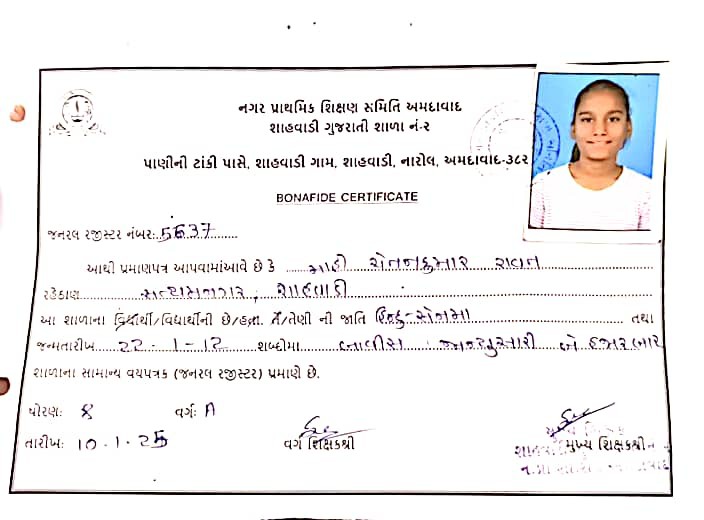 નગર પ્રાથમિક શિક્ષણ સમિતિ અમદાવાદ
શાહવાડી ગુજરાતી શાળા નં-૨
પાણીની ટાંકી પાસે, શાહવાડી ગામ, શાહવાડી, નારોલ, અમદાવાદ-૩૮૨
BONAFIDE CERTIFICATE
જનરલ રજીસ્ટર નંબર: 5637
આથી પ્રમાણપત્ર આપવામાંઆવે છે કે માહી ચેતનકુમાર રાવત
રહેઠાણ સત્યમનગર, શાહવાડી
આ શાળાના વિદ્યાર્થી/વિદ્યાર્થીની છે/હતા. તે/તેણી ની જાતિ હિન્દુ- તથા
જન્મતારીખ 22-1-12 શબ્દોમા બાવીસ જાન્યુઆરી બે હજાર બાર
શાળાના સામાન્ય વયપત્રક (જનરલ રજીસ્ટર) પ્રમાણે છે.
ધોરણ: 8 વર્ગ: A
તારીખ: 10.1.25 વર્ગ શિક્ષકશ્રી મુખ્ય શિક્ષકશ્રી